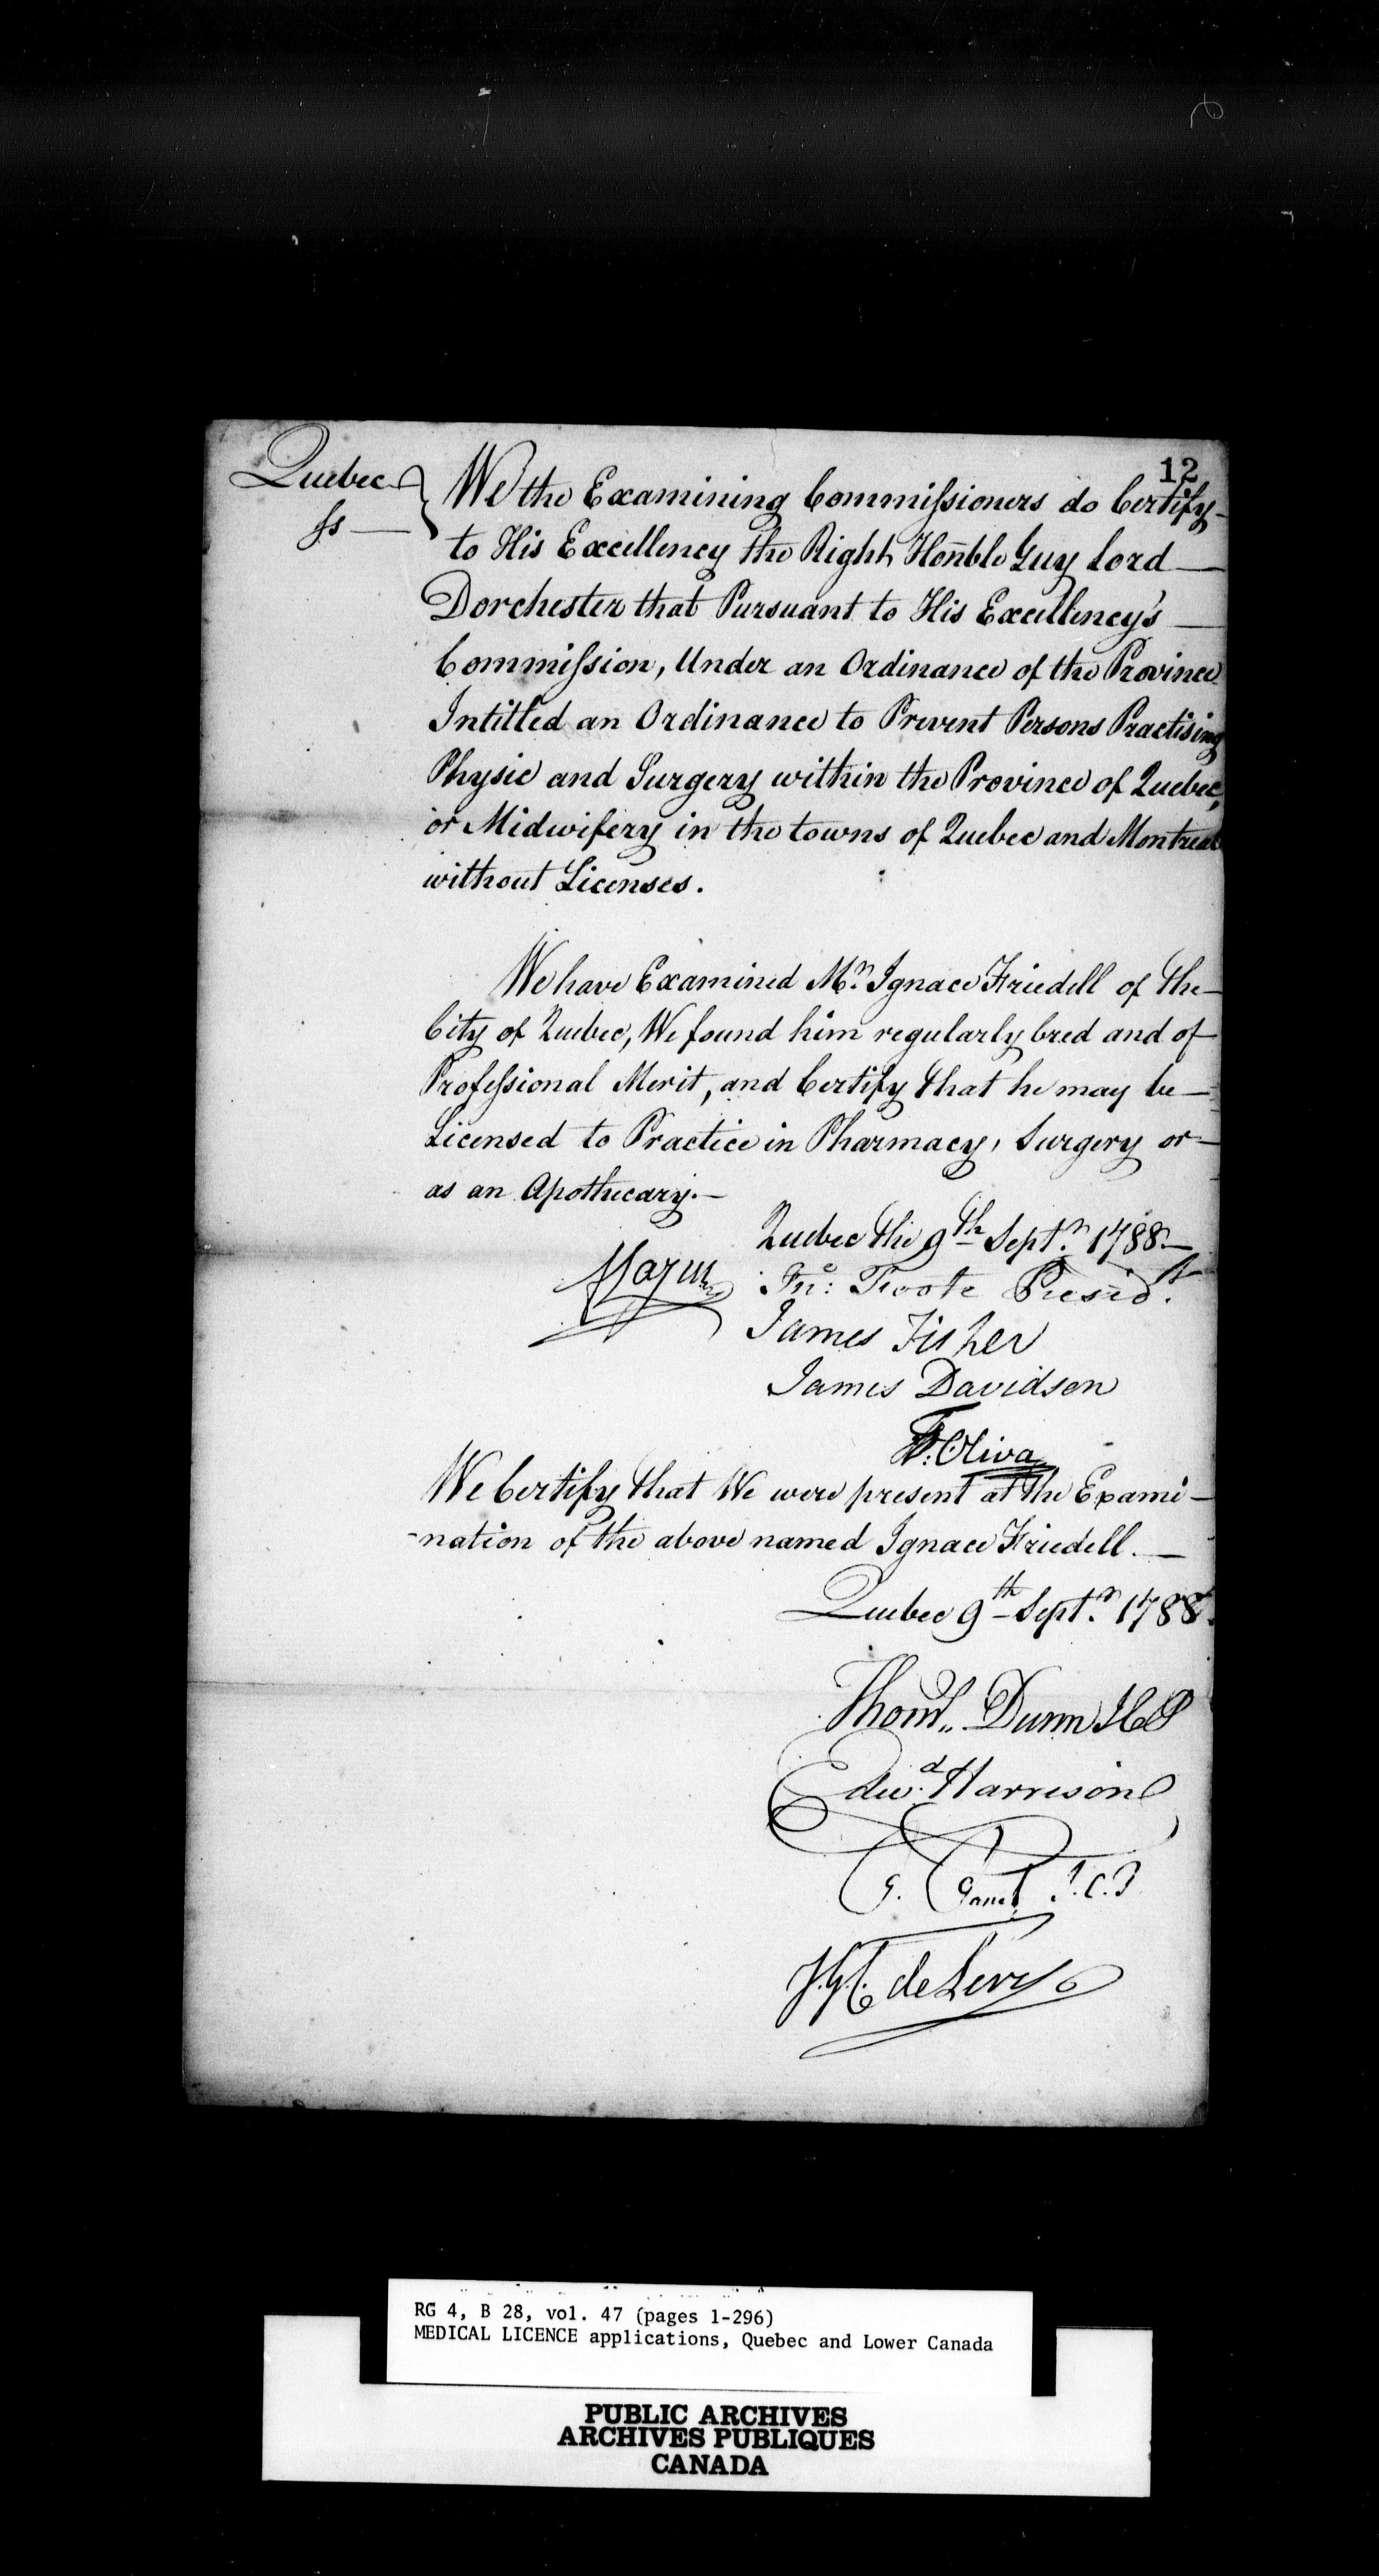 12
Quebec } We the Examining Commissioners do Certify
ss — to His Excellency the Right Honble Guy Lord
Dorchester that Pursuant to His Excellency's
Commission, Under an Ordinance of the Province
Intitled an Ordinance to Prevent Persons Practising
Physic and Surgery within the Province of Quebec,
or Midwifery in the towns of Quebec and Montreal
without Licenses.
We have Examined Mr. Ignace Friedell of the
City of Quebec, We found him regularly bred and of
Professional Merit, and Certify that he may be
Licensed to Practice in Pharmacy, Surgery or
as an Apothecary.—
Quebec the 9th Septr. 1788.—
Jno: Foote Presidt.
James Fisher
James Davidson
F: Oliva
We Certify that We were present at the Exami-
-nation of the above named Ignace Friedell.—
Quebec 9th Septr. 1788.
Thoms. Dunn
Edwd. Harrison
G.
de Lery
RG 4, B 28, vol. 47 (pages 1-296)
MEDICAL LICENCE applications, Quebec and Lower Canada
PUBLIC ARCHIVES
ARCHIVES PUBLIQUES
CANADA